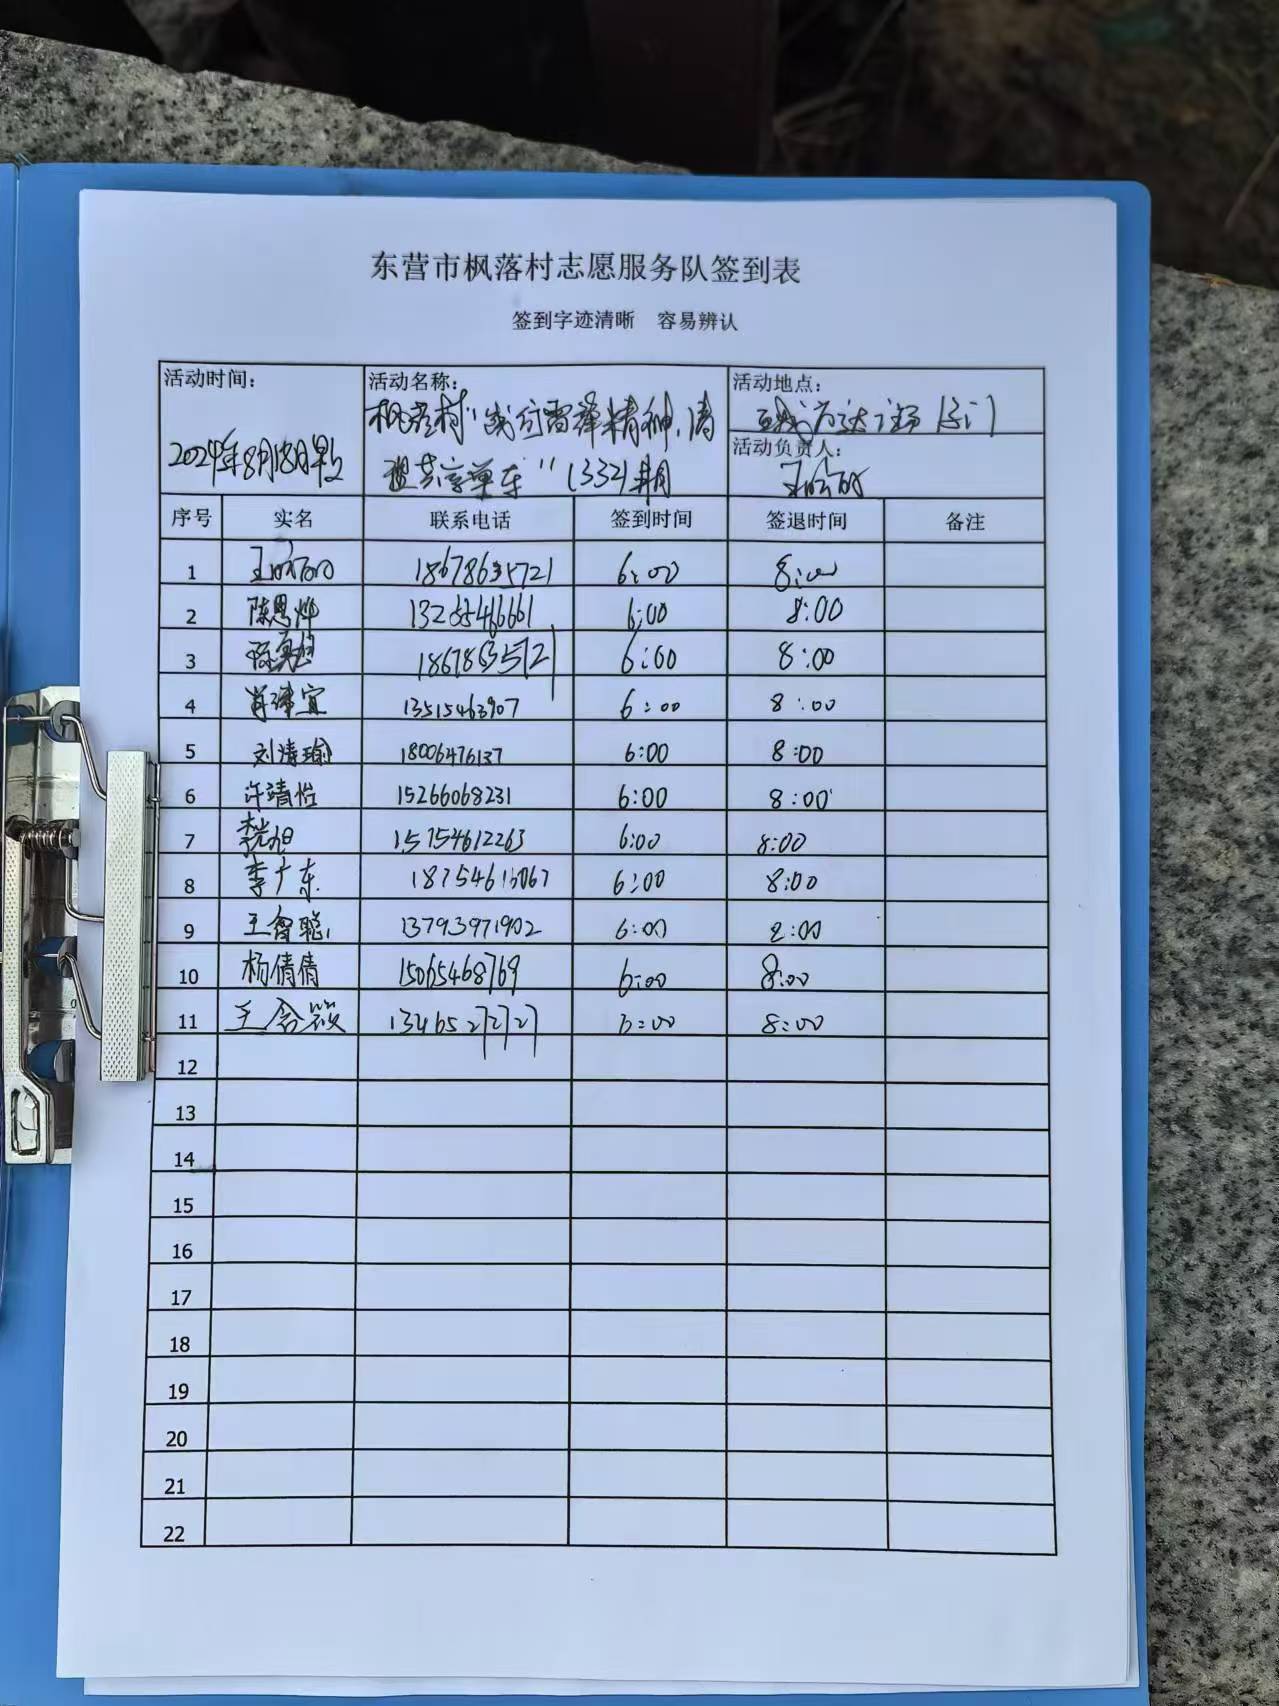 东营市枫落村志愿服务队签到表
签到字迹清晰 容易辨认
活动时间: 活动名称: 活动地点:
枫落村"践行雷锋精神,清
万达广场 门
2024年8月18日早 共享单车"(332)期
活动负责人:
序号 实名 联系电话 签到时间 签退时间 备注
1 18678635721 6:00 8:00
2 陈恩烨 13265546661 6:00 8:00
3 18678635721 6:00 8:00
4 肖津宜 13515463907 6:00 8:00
5 刘清瑜 18006476137 6:00 8:00
6 许靖怡 15266068231 6:00 8:00
7 15754612263 6:00 8:00
8 李广东 18754613067 6:00 8:00
9 王智聪 13793971902 6:00 8:00
10 杨倩倩 15065468769 6:00 8:00
11 王含筱 13465272727 6:00 8:00
12
13
14
15
16
17
18
19
20
21
22